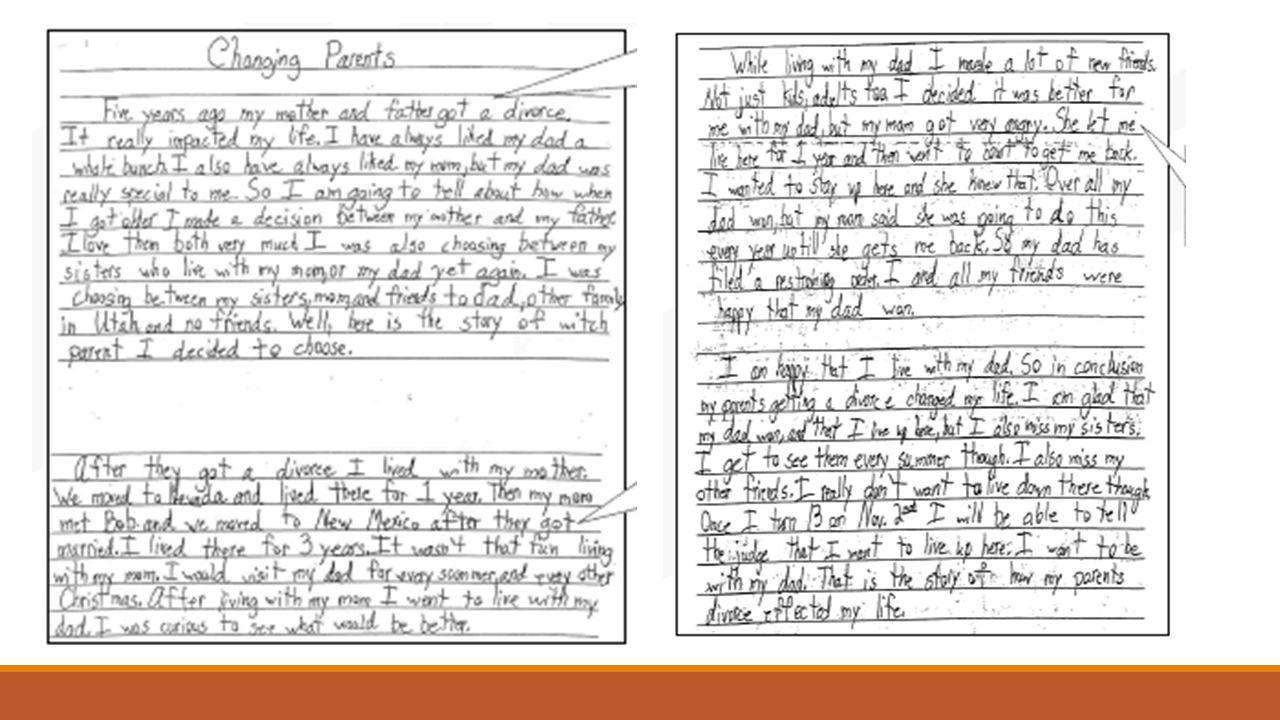 Changing Parents
Five years ago my mother and father got a divorce.
It really impacted my life. I have always liked my dad a
whole bunch. I also have always liked my mom, but my dad was
really special to me. So I am going to tell about how when
I got older I made a decision between my mother and my father
I love them both very much. I was also choosing between my
sisters who live with my mom, or my dad yet again. I was
choosing between my sisters, mom, and friends to dad, other family
in Utah and no friends. Well, here is the story of witch
parent I decided to choose.
After they got a divorce I lived with my mother.
We moved to Nevada and lived there for 1 year. Then my mom
met Bob and we moved to New Mexico after they got
married. I lived there for 3 years. It wasn't that fun living
with my mom. I would visit my dad for every summer, and every other
Christmas. After living with my mom I went to live with my
dad. I was curious to see what would be better.
While living with my dad I made a lot of new friends.
Not just kids, adults too. I decided it was better for
me with my dad, but my mom got very angry. She let me
live here for 1 year and then went to court to get me back.
I wanted to stay up here and she knew that. Over all my
dad won, but my mom said she was going to do this
every year untill she gets me back. So my dad has
filed a restraining order. I and all my friends were
happy that my dad won.
I am happy that I live with my dad. So in conclusion
my parents getting a divorce changed my life. I am glad that
my dad won, and that I live up here, but I also miss my sisters.
I get to see them every summer though. I also miss my
other friends. I really don't want to live down there though.
Once I turn 13 on Nov. 2nd I will be able to tell
the judge that I want to live up here. I want to be
with my dad. That is the story of how my parents
divorce effected my life.